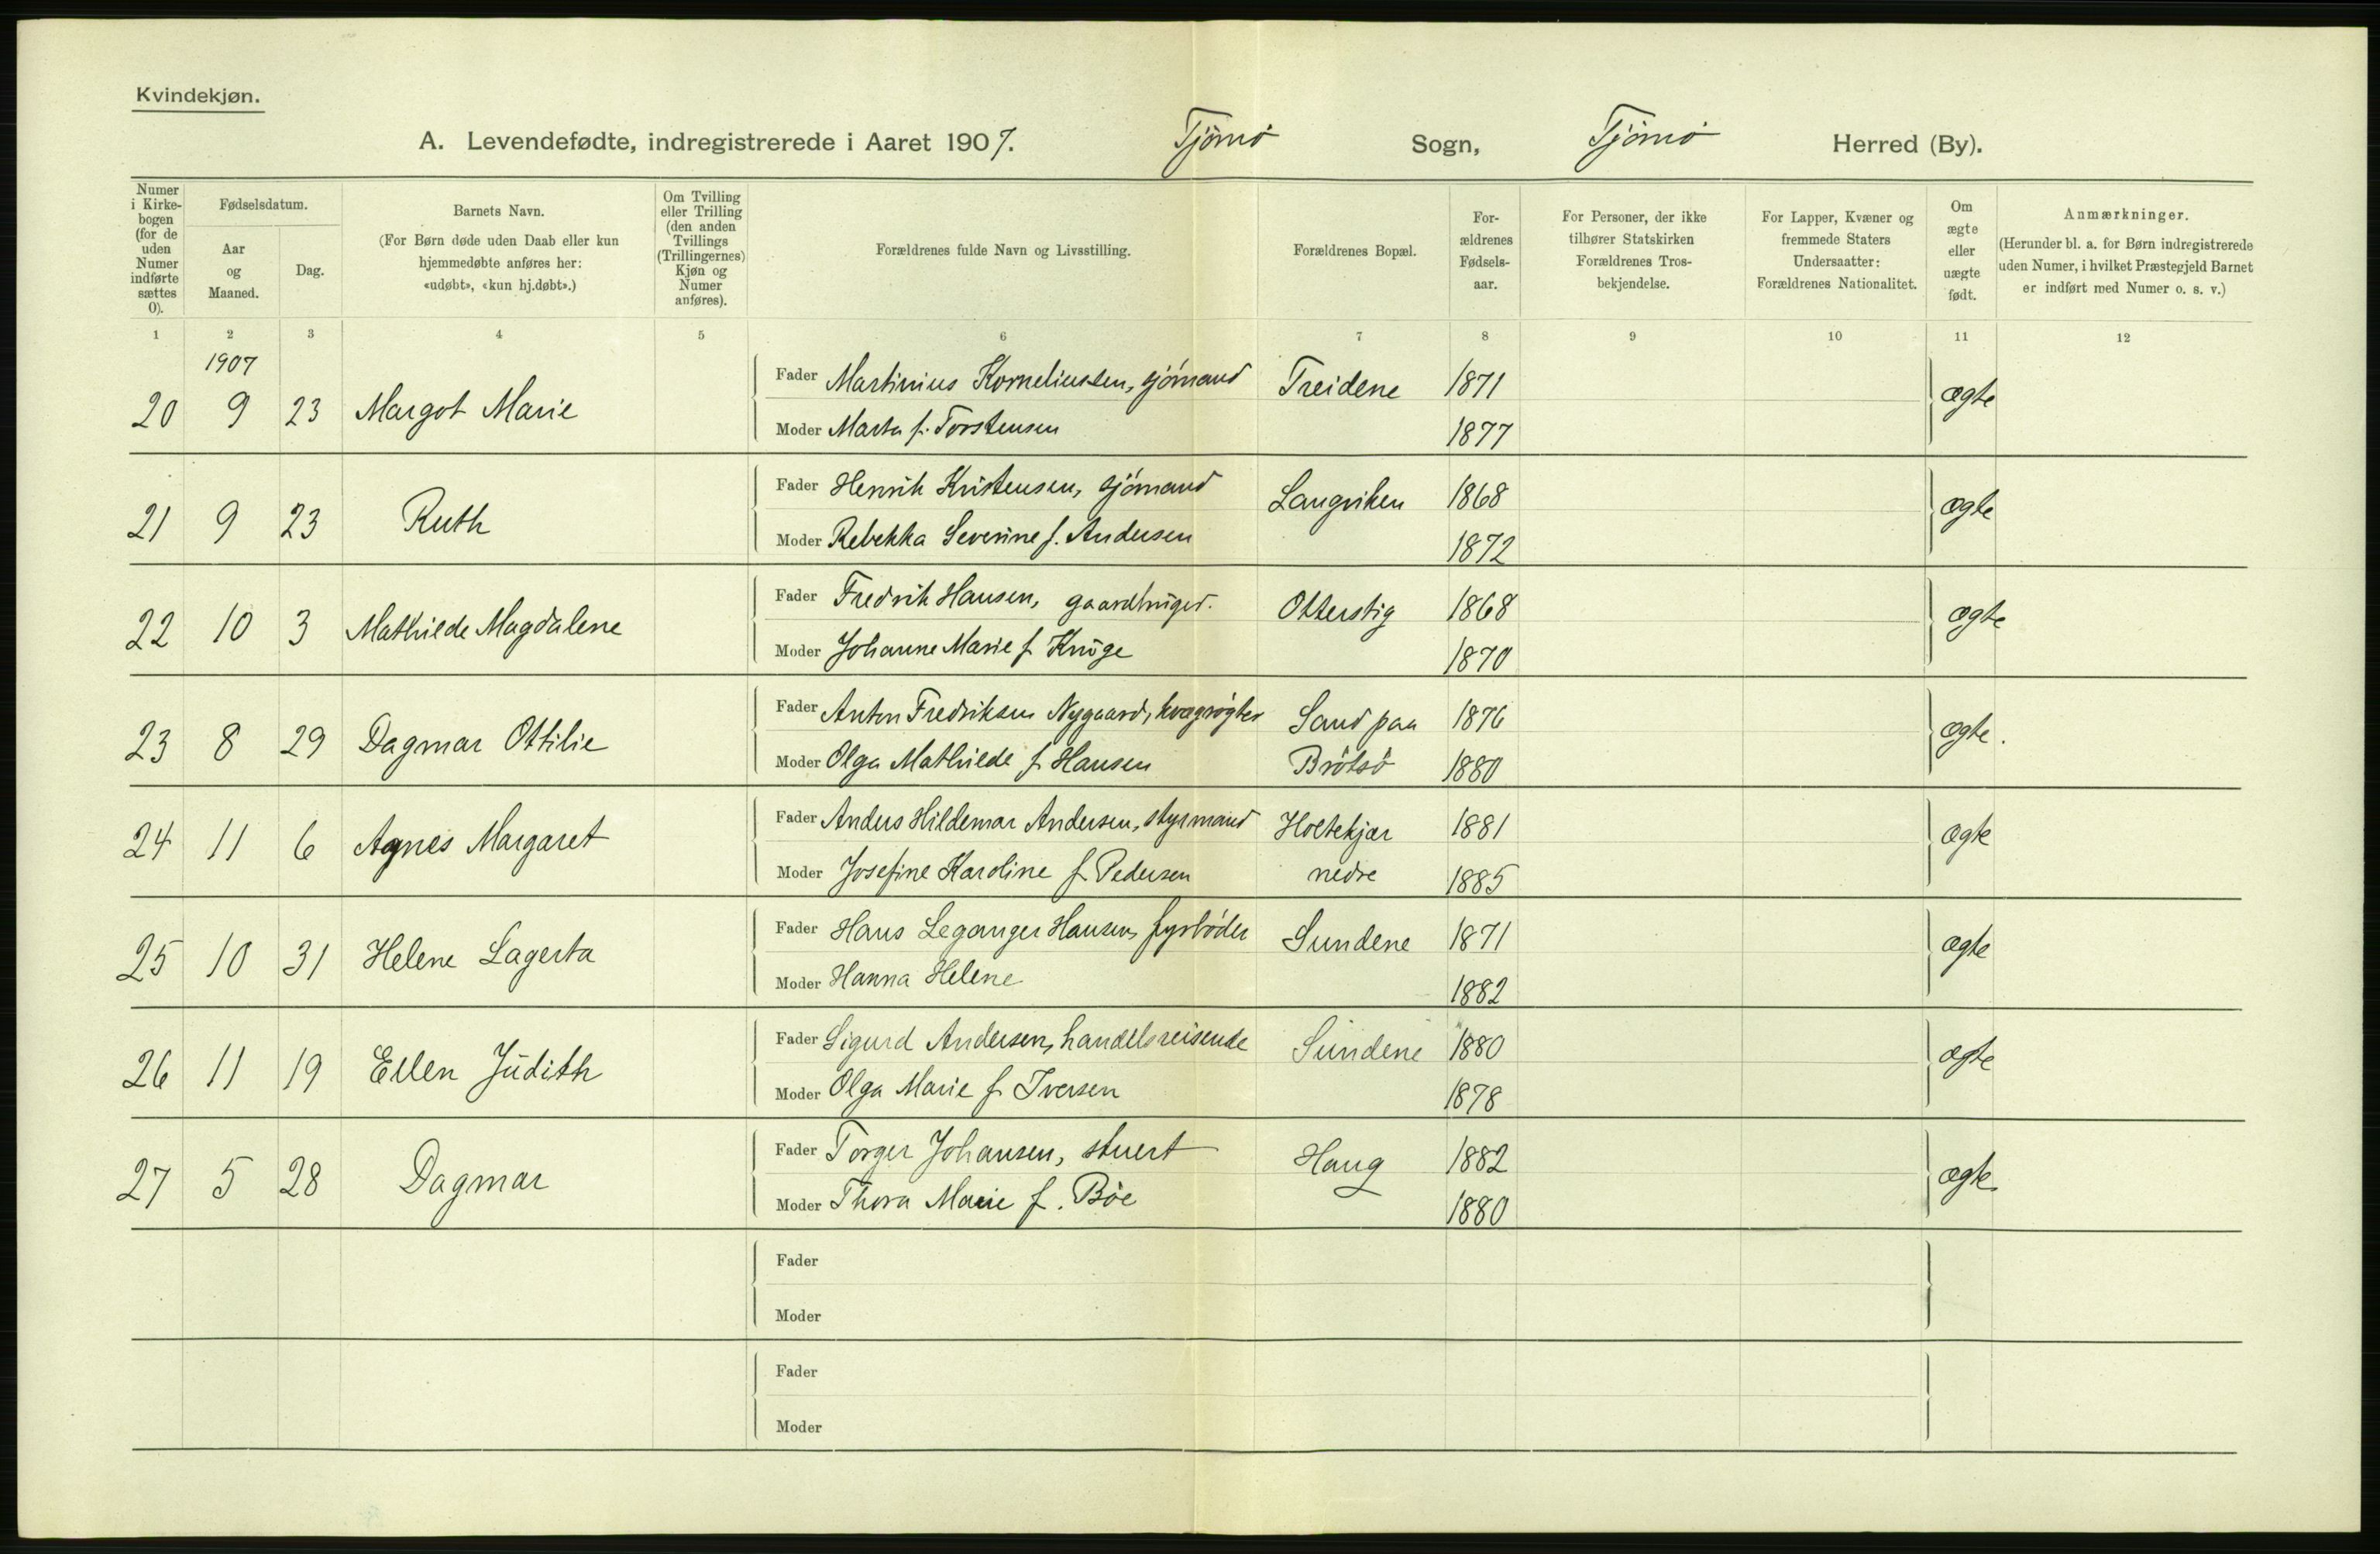 Kvindekjøn.
A. Levendefødte, indregistrerede i Aaret 1907. Tjömö Sogn, Tjömö Herred (By).
Numer i Kirke-bogen (for de uden Numer indførte sættes 0).
Fødselsdatum.
Aar og Maaned.
Dag.
Barnets Navn.
(For Børn døde uden Daab eller kun hjemmedøbte anføres her: «udøbt», «kun hj.døbt».)
Om Tvilling eller Trilling (den anden Tvillings (Trillingernes) Kjøn og Numer anføres).
Forældrenes fulde Navn og Livsstilling.
Forældrenes Bopæl.
For-ældrenes Fødsels-aar.
For Personer, der ikke tilhører Statskirken Forældrenes Tros-bekjendelse.
For Lapper, Kvæner og fremmede Staters Undersaatter: Forældrenes Nationalitet.
Om ægte eller uægte født.
Anmærkninger.
(Herunder bl. a. for Børn indregistrerede uden Numer, i hvilket Præstegjeld Barnet er indført med Numer o. s. v.)
1 2 3 4 5 6 7 8 9 10 11 12
1907
20 9 23 Margot Marie Fader Martinius Korneliussen, sjömand Treidene 1871 ægte
Moder Marta f. Torstensen 1877
21 9 23 Ruth Fader Henrik Kristensen, sjömand Langviken 1868 ægte
Moder Rebekka Severine f. Andersen 1872
22 10 3 Mathilde Magdalene Fader Fredrik Hansen, gaardbruger. Otterstig 1868 ægte
Moder Johanne Marie f. Krüge 1870
23 8 29 Dagmar Ottilie Fader Anton Fredriksen Nygaard, kvægrögter Sand paa 1876 ægte.
Moder Olga Mathilde f. Hansen Brötsö 1880
24 11 6 Agnes Margaret Fader Anders Hildemar Andersen, styrmand Holtekjær 1881 ægte
Moder Josefine Karoline f. Pedersen nedre 1885
25 10 31 Helene Lagerta Fader Hans Leganger Hansen, fyrböder Sundene 1871 ægte
Moder Hanna Helene 1882
26 11 19 Ellen Judith Fader Sigurd Andersen, handelsreisende Sundene 1880 ægte
Moder Olga Marie f. Iversen 1878
27 5 28 Dagmar Fader Torger Johansen, stuert Haug 1882 ægte
Moder Thora Marie f. Böe 1880
Fader
Moder
Fader
Moder